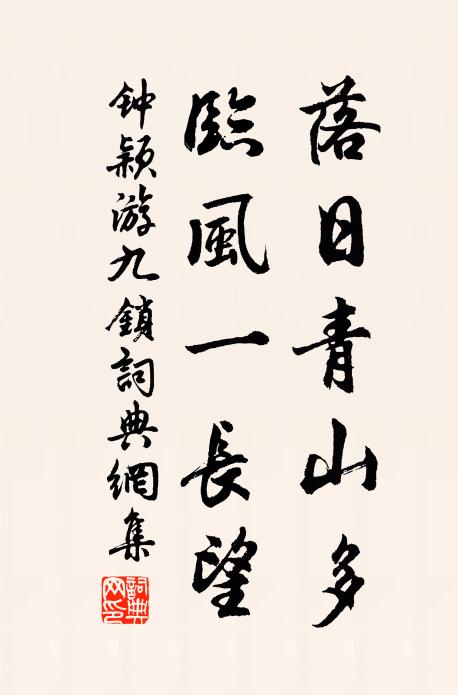 落日青山多
臨風一長望
钟颖游九鎖詞典網集
詞典网印